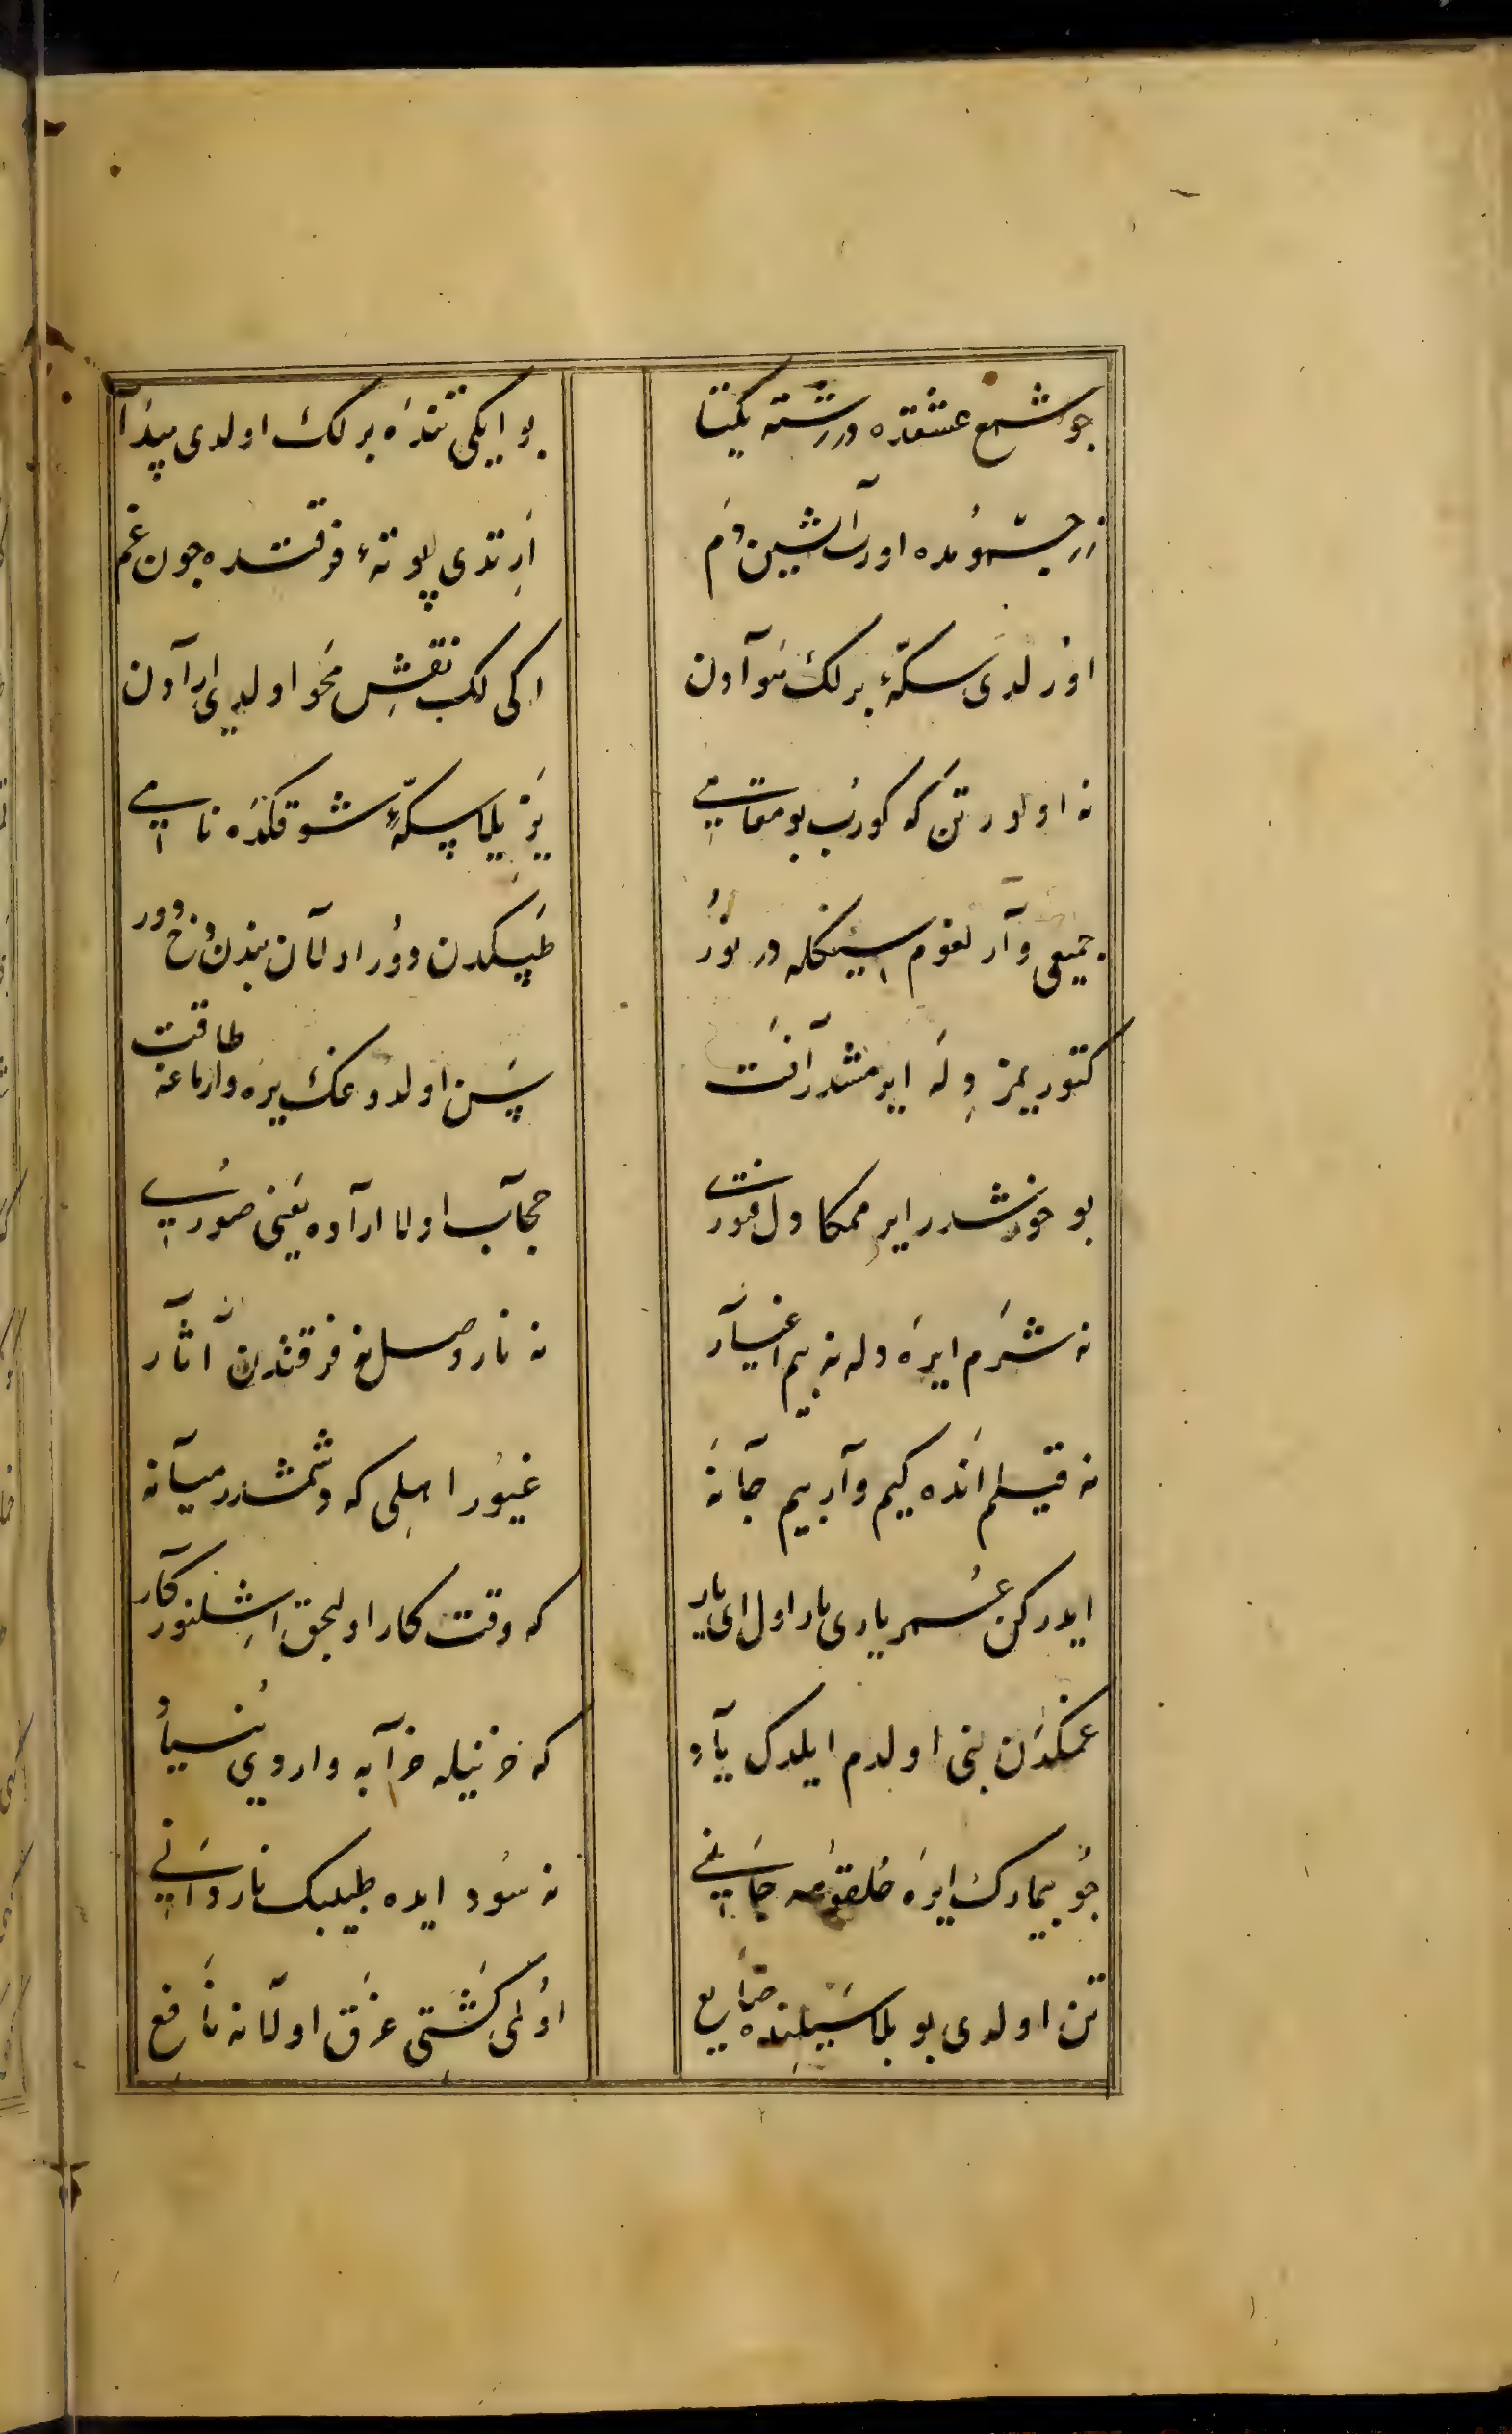 چو شمع عشقده در رشته یکتا بو ایکی تنده برلک اولدی پیدا
زر جسمومده اور آتشین دم ارتدی پوتهٔ فرقتده چون غم
اورلدی سکهٔ برلک سو آدن اکی لک نقش محو اولدی ارادن
نه اولور تن که کورب بو مقامی یزیلا سکهٔ شوقکده نامی
جمیعی وار لغوم سینکله در نور طپکدن دور اولان بندن دخ دور
کتوریمز دله ایرمشدر آفت پس اولدوغک یره وارماغه طاقت
بو خوشدر ایرممک اول قورت حجاب اولا اراده یعنی صورت
نه شرم ایره دله نه بیم اغیار نه نار وصل نه فرقتدن آثار
نه قیلم انده کیم وار بیم جانه غیور اهلی که دشمندر میانه
ایدرکن عمر یاری یار اول ای یار که وقت کار اولیجق اشلنور کار
غمکدن بنی اولدم ایلدک یاد که خزنیله خرابه واردی بنیاد
چو بیمارک ایره حلقومه جانی نه سود ایده طبیبک ناردانی
تن اولدی بو بلا سیلنده ضایع اولی کشتی غرق اولانه نافع